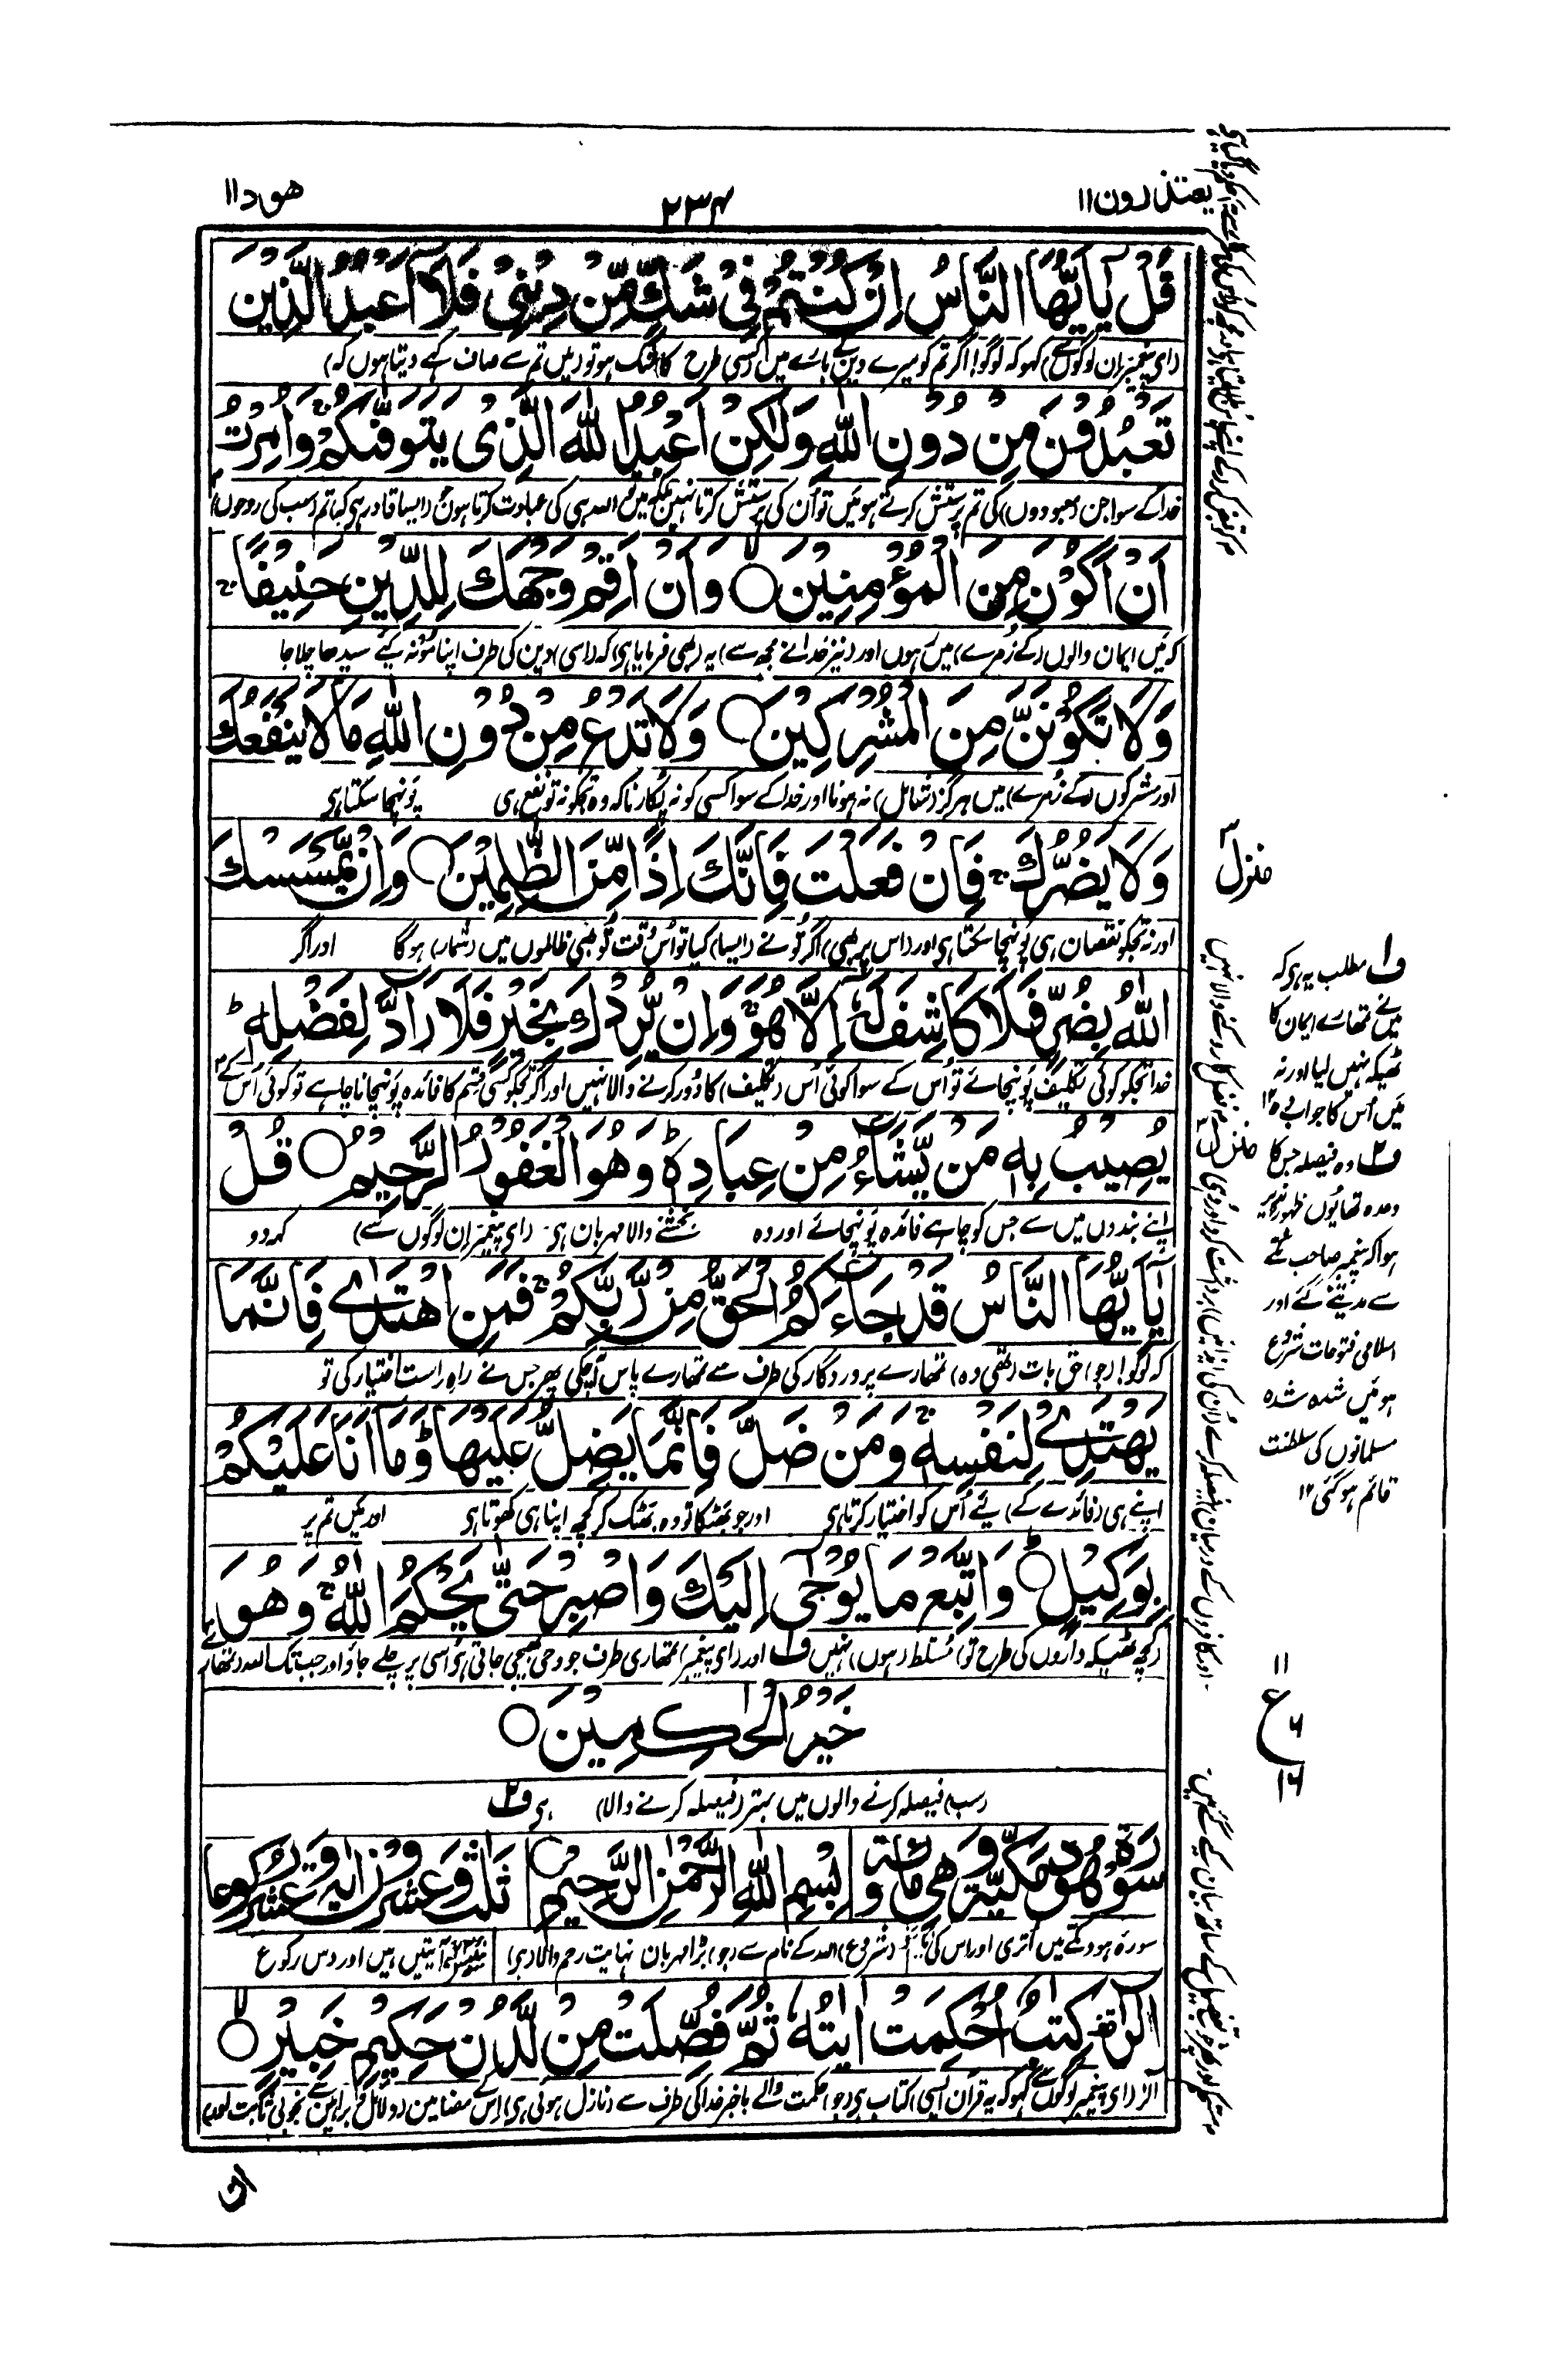 یعتذرون۱۱
۲۳۴
ھود۱۱
قُلْ يٰٓاَيُّهَا النَّاسُ اِنْ كُنْتُمْ فِیْ شَكٍّ مِّنْ دِيْنِیْ فَلَآ اَعْبُدُ الَّذِيْنَ
(ای پیغمبر ان لوگوں سے) کہو کہ لوگو! اگر تم کو میرے دین کے بارے میں (کسی طرح کا) شک ہو تو (میں تم سے صاف کہے دیتا ہوں کہ)
تَعْبُدُوْنَ مِنْ دُوْنِ اللّٰهِ وَلٰكِنْ اَعْبُدُ اللّٰهَ الَّذِیْ يَتَوَفّٰىكُمْ ۚ وَاُمِرْتُ
خدا کے سوا جن (معبودوں) کی تم پرستش کرتے ہو میں تو اُن کی پرستش کرتا نہیں بلکہ میں تو اللہ ہی کی عبادت کرتا ہوں (ایسا قادر ہی کہ) تم (سب کی روحوں)
اَنْ اَكُوْنَ مِنَ الْمُؤْمِنِيْنَ ۙ وَاَنْ اَقِمْ وَجْهَكَ لِلدِّيْنِ حَنِيْفًا ۚ
کہ میں ایمان والوں (کے زُمرے) میں ہوں اور (نیز خدا نے مجھ سے) یہ (بھی فرمایا ہی) کہ (اسی) دین کی طرف اپنا مُونہہ کیے سیدھا چلا جا
وَلَا تَكُوْنَنَّ مِنَ الْمُشْرِكِيْنَ وَلَا تَدْعُ مِنْ دُوْنِ اللّٰهِ مَا لَا يَنْفَعُكَ
اور مشرکوں (کے زُمرے) میں ہرگز (شامل) نہ ہونا اور خدا کے سوا کسی کو نہ پکارنا کہ وہ تجکو نہ تو نفع ہی پونہچا سکتا ہی
وَلَا يَضُرُّكَ ۚ فَاِنْ فَعَلْتَ فَاِنَّكَ اِذًا مِّنَ الظّٰلِمِيْنَ وَاِنْ يَّمْسَسْكَ
اور نہ تجکو نقصان ہی پونہچا سکتا ہی اور (اس پر بھی) اگر تُو نے (ایسا) کیا تو اُس وقت تُو بھی ظالموں میں (شمار) ہو گا اور اگر
اللّٰهُ بِضُرٍّ فَلَا كَاشِفَ لَهٗٓ اِلَّا هُوَ ۚ وَاِنْ يُّرِدْكَ بِخَيْرٍ فَلَا رَآدَّ لِفَضْلِهٖ ؕ
خدا تجکو کوئی تکلیف پونہچائے تو اُس کے سوا کوئی اُس (تکلیف) کا دُور کرنے والا نہیں اور اگر تجکو کسی قسم کا فائدہ پونہچانا چاہے تو کوئی اُس کے
يُصِيْبُ بِهٖ مَنْ يَّشَآءُ مِنْ عِبَادِهٖ ؕ وَهُوَ الْغَفُوْرُ الرَّحِيْمُ قُلْ
اپنے بندوں میں سے جس کو چاہے فائدہ پونہچائے اور وہ بخشنے والا مہربان ہی۔ (ای پیغمبر اِن لوگوں سے) کہہ دو
يٰٓاَيُّهَا النَّاسُ قَدْ جَآءَكُمُ الْحَقُّ مِنْ رَّبِّكُمْ ۚ فَمَنِ اهْتَدٰی فَاِنَّمَا
کہ لوگو! (جو) حق بات (تھی وہ) تمھارے پروردگار کی طرف سے تمھارے پاس آچکی پھر جس نے راہِ راست اختیار کی تو
يَهْتَدِیْ لِنَفْسِهٖ ۚ وَمَنْ ضَلَّ فَاِنَّمَا يَضِلُّ عَلَيْهَا ؕ وَمَآ اَنَا عَلَيْكُمْ
اپنے ہی (فائدے کے) لیے اُس کو اختیار کرتا ہی اور جو بھٹکا تو وہ بھٹک کر کچھ اپنا ہی کھوتا ہی اور میں تم پر
بِوَكِيْلٍ ؕ وَاتَّبِعْ مَا يُوْحٰٓی اِلَيْكَ وَاصْبِرْ حَتّٰی يَحْكُمَ اللّٰهُ ۚ وَهُوَ
(کچھ ٹھیکہ داروں کی طرح تو) مُسلط (ہوں) نہیں ف۱ اور (ای پیغمبر) تمھاری طرف جو وحی بھیجی جاتی ہی اُسی پر چلے جاؤ اور جب تک اللہ (تمھارے
خَيْرُ الْحٰكِمِيْنَ
(سب) فیصلہ کرنے والوں میں بہتر (فیصلہ کرنے والا) ہی ف۲
سُوْرَةُ هُوْدٍ مَكِّيَّةٌ وَّهِیَ مِائَةٌ وَّ | بِسْمِ اللّٰهِ الرَّحْمٰنِ الرَّحِيْمِ | ثَلٰثٌ وَّعِشْرُوْنَ اٰيَةً وَّعَشْرُ رُكُوْعًا
سورہ ہود مکے میں اُتری اور اس کی | (شروع) اللہ کے نام سے (جو) بڑا مہربان نہایت رحم والا (ہی) | آیتیں ہیں اور دس رکوع
الٓرٰ ۫ كِتٰبٌ اُحْكِمَتْ اٰيٰتُهٗ ثُمَّ فُصِّلَتْ مِنْ لَّدُنْ حَكِيْمٍ خَبِيْرٍ ۙ
الٓرٰ (ای پیغمبر لوگوں سے کہو کہ یہ قرآن ایسی) کتاب ہی (جو) حکمت والے باخبر خدا کی طرف سے (نازل ہوئی ہی) اِس کے مضامین (دلائل و براہین سے بخوبی ثابت
منزل ۳
ف۱ مطلب یہ ہی کہ
میں نے تمھارے ایمان کا
ٹھیکہ نہیں لیا اور نہ
میں اُس کا جواب دہ ۱۲
ف۲ وہ فیصلہ جس کا
وعدہ تھا یُوں ظہور پذیر
ہوا کہ پیغمبر صاحب مکّے
سے مدینے گئے اور
اسلامی فتوحات شروع
ہوئیں شدہ شدہ
مسلمانوں کی سلطنت
قائم ہو گئی ۱۲
۱۱
ع ۶
۱۶